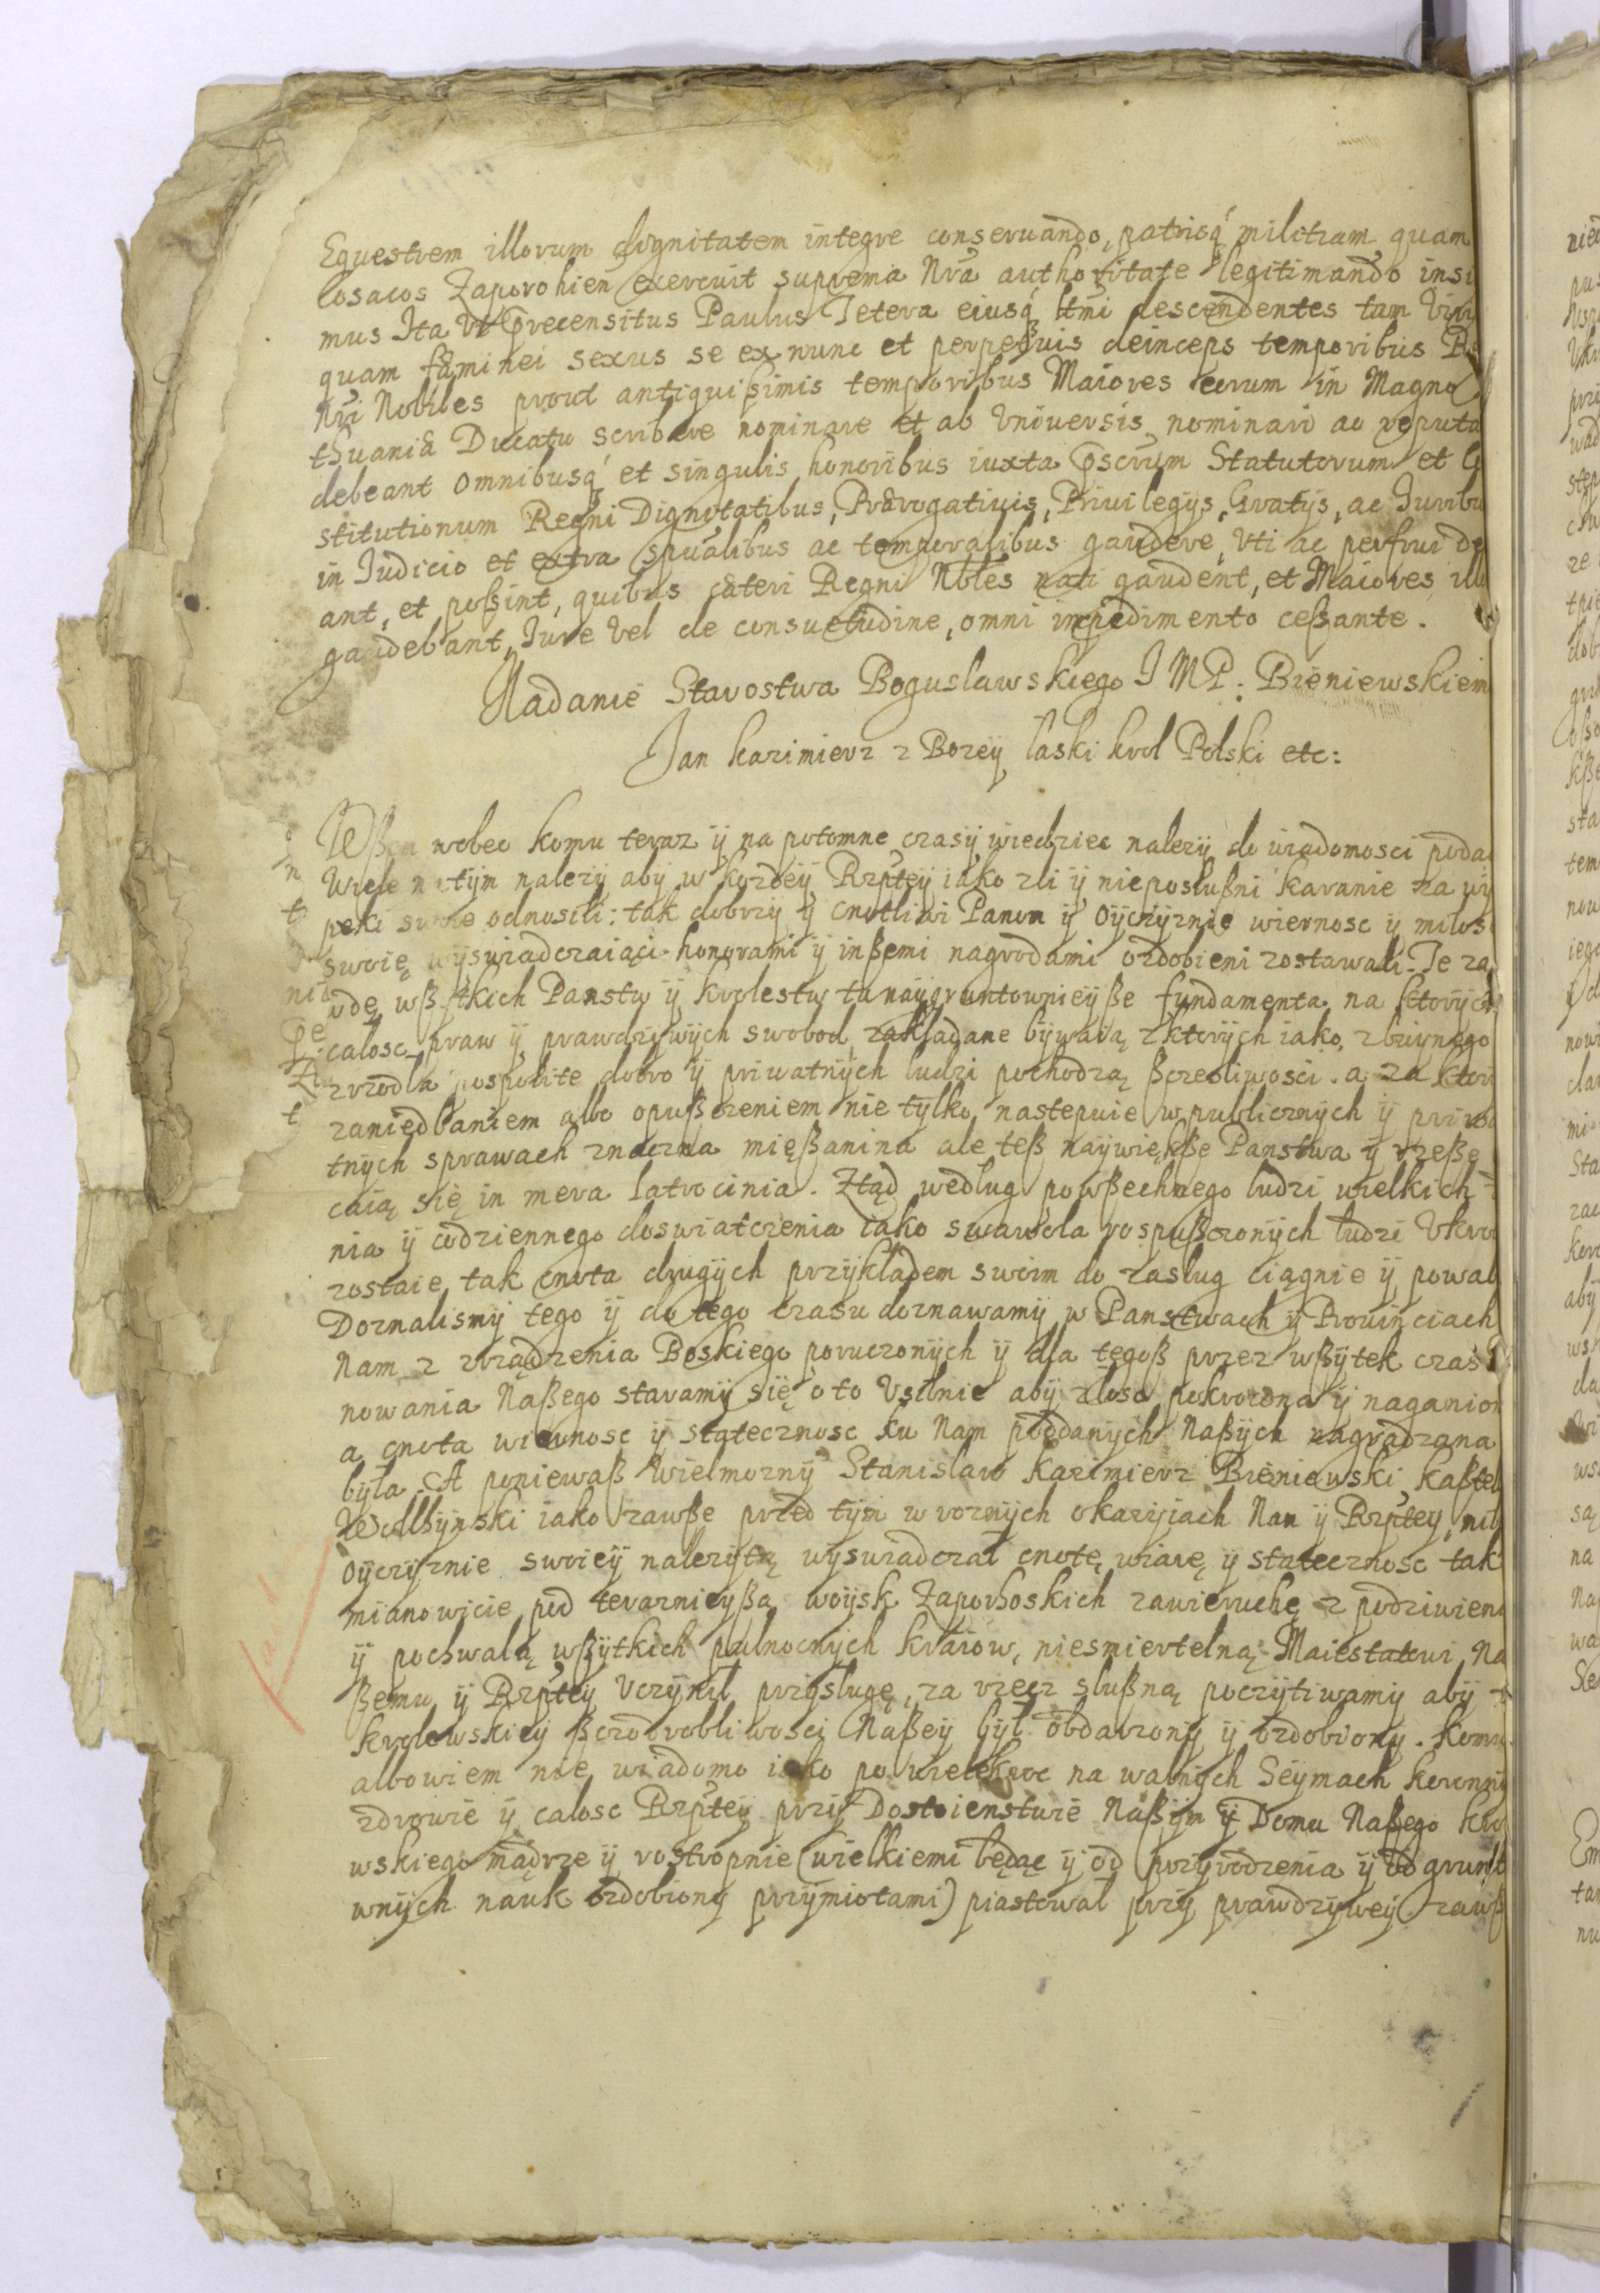 Equestrem illorum dignitatem integre conseruando, patrisq́ militiam quam
Cosacos Zaporohien̄ exercuit suprema Nrā authoritate legitimando insi
mus Ita Vt precensitus Paulus Tetera eiusq́ ltmi descendentes tam Viri
quam fæminei sexus se ex nunc et perpetuis deinceps temporibus Re
Nri Nobiles prout antiquißimis temporibus Maiores eorum in Magno
thuaniæ Ducatu scribere nominare et ab Vniuersis nominari ac reputa
debeant omnibusq́ et singulis honoribus iuxta pscrum Statutorum et C
stitutionum Regni Dignitatibus, Prærogatiuis, Priuilegijs, Gratijs, ac Juribu
in Judicio et extra spualibus ac temporalibus gaudere, Vti ac perfrui de
ant, et poßint, quibus cæteri Regni Nbles nati gaudent, et Maiores illo
gaudebant, Jure Vel de consuetudine, omni impedimento ceßante.
Nadanie Starostwa Boguslawskiego J M P: Bieniewskiem
Jan Kazimierz z Bozey laski krol Polski etc:
Wßem wobec komu teraz ÿ na potomne czasÿ wiedziec nalezÿ do wiadomosci poda
Wiele na tÿm nalezÿ abÿ w kozdeÿ Rzpteÿ iako zli ÿ nieposlußni karanie za wÿ
peki swoie odnosili: tak dobrzÿ ÿ cnotliwi Panom ÿ Oÿczÿznie wiernosc ÿ milos
swoię wÿswiadczaiąci honorami ÿ inßemi nagrodami ozdobieni zostawali. Te za
wdę wßÿtkich Panstw ÿ krolestw ta naÿgruntownieÿße fundamenta na ktorÿch
calosc praw ÿ prawdziwÿch swobod zakladane bÿwaią z ktorÿch iako z bujnego
zrzodla pospolite dobro ÿ priwatnÿch ludzi pochodzą ßczesliwosci. a za ktor
zaniedbaniem albo opußczeniem nie tÿlko nastepuie w publicznÿch ÿ priwa
tnÿch sprawach znaczna mießanina ale teß naÿwiękße Panstwa ÿ rzeße
caią się in mera latrocinia. Ztąd wedlug powßechnego ludzi wielkich
nia ÿ codziennego doswiatczenia iako swawola rospußczonÿch ludzi Vkro
zostaie, tak cnota drugÿch przÿkladem swoim do zaslug ciągnie ÿ powab
Doznalismÿ tego ÿ do tego czasu doznawamÿ w Panstwach ÿ Prouinciach
Nam z zrządzenia Boskiego poruczonÿch ÿ dla tegoß przez wßÿtek czas
nowania Naßego staramÿ się o to Vsilnie abÿ zlosc pokrocona ÿ naganion
a cnota wiernosc ÿ statecznosc ku Nam poddanÿch Naßÿch nagradzana
bÿla. A poniewaß Wielmoznÿ Stanislaw Kazimierz Bieniewski Kaßtel
Wolhÿnski iako zawße przed tÿm w roznÿch okazÿiach Nam ÿ Rzpteÿ, mil
Oÿczÿznie swoieÿ nalezÿtą wÿswiadczal cnotę, wiarę ÿ statecznosc tak
mianowicie pod terazniejßą woÿsk Zaporhoskich zawieruchę z podziwieni
ÿ pochwalą wßÿtkich pulnocnÿch kraiow, niesmiertelną Maiestatowi Na
ßemu ÿ Rzpteÿ Vczÿnil przÿslugę, za rzecz slußną poczÿtiwamÿ abÿ
krolewskieÿ ßczodrobliwosci Naßeÿ bÿl obdarzonÿ ÿ ozdobionÿ. Komu
albowiem nie wiadomo iako po wielekroc na walnÿch Seÿmach koronnÿ
zdrowie ÿ calosc Rzpteÿ przÿ Dostoienstwie Naßÿm ÿ Domu Naßego kro
wskiego mądrze ÿ rostropnie (wielkiemi będąc ÿ od przÿrodzenia ÿ od grunt
wnÿch nauk ozdobionÿ przÿmiotami) piastowal przÿ prawdziweÿ zawß